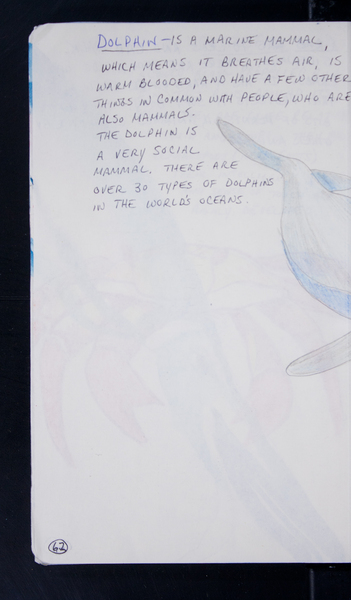 DOLPHIN - IS A MARINE MAMMAL,
WHICH MEANS IT BREATHES AIR, IS
WARM BLOODED, AND HAVE A FEW OTHER
THINGS IN COMMON WITH PEOPLE, WHO ARE
ALSO MAMMALS.
THE DOLPHIN IS
A VERY SOCIAL
MAMMAL. THERE ARE
OVER 30 TYPES OF DOLPHINS
IN THE WORLD'S OCEANS.
62